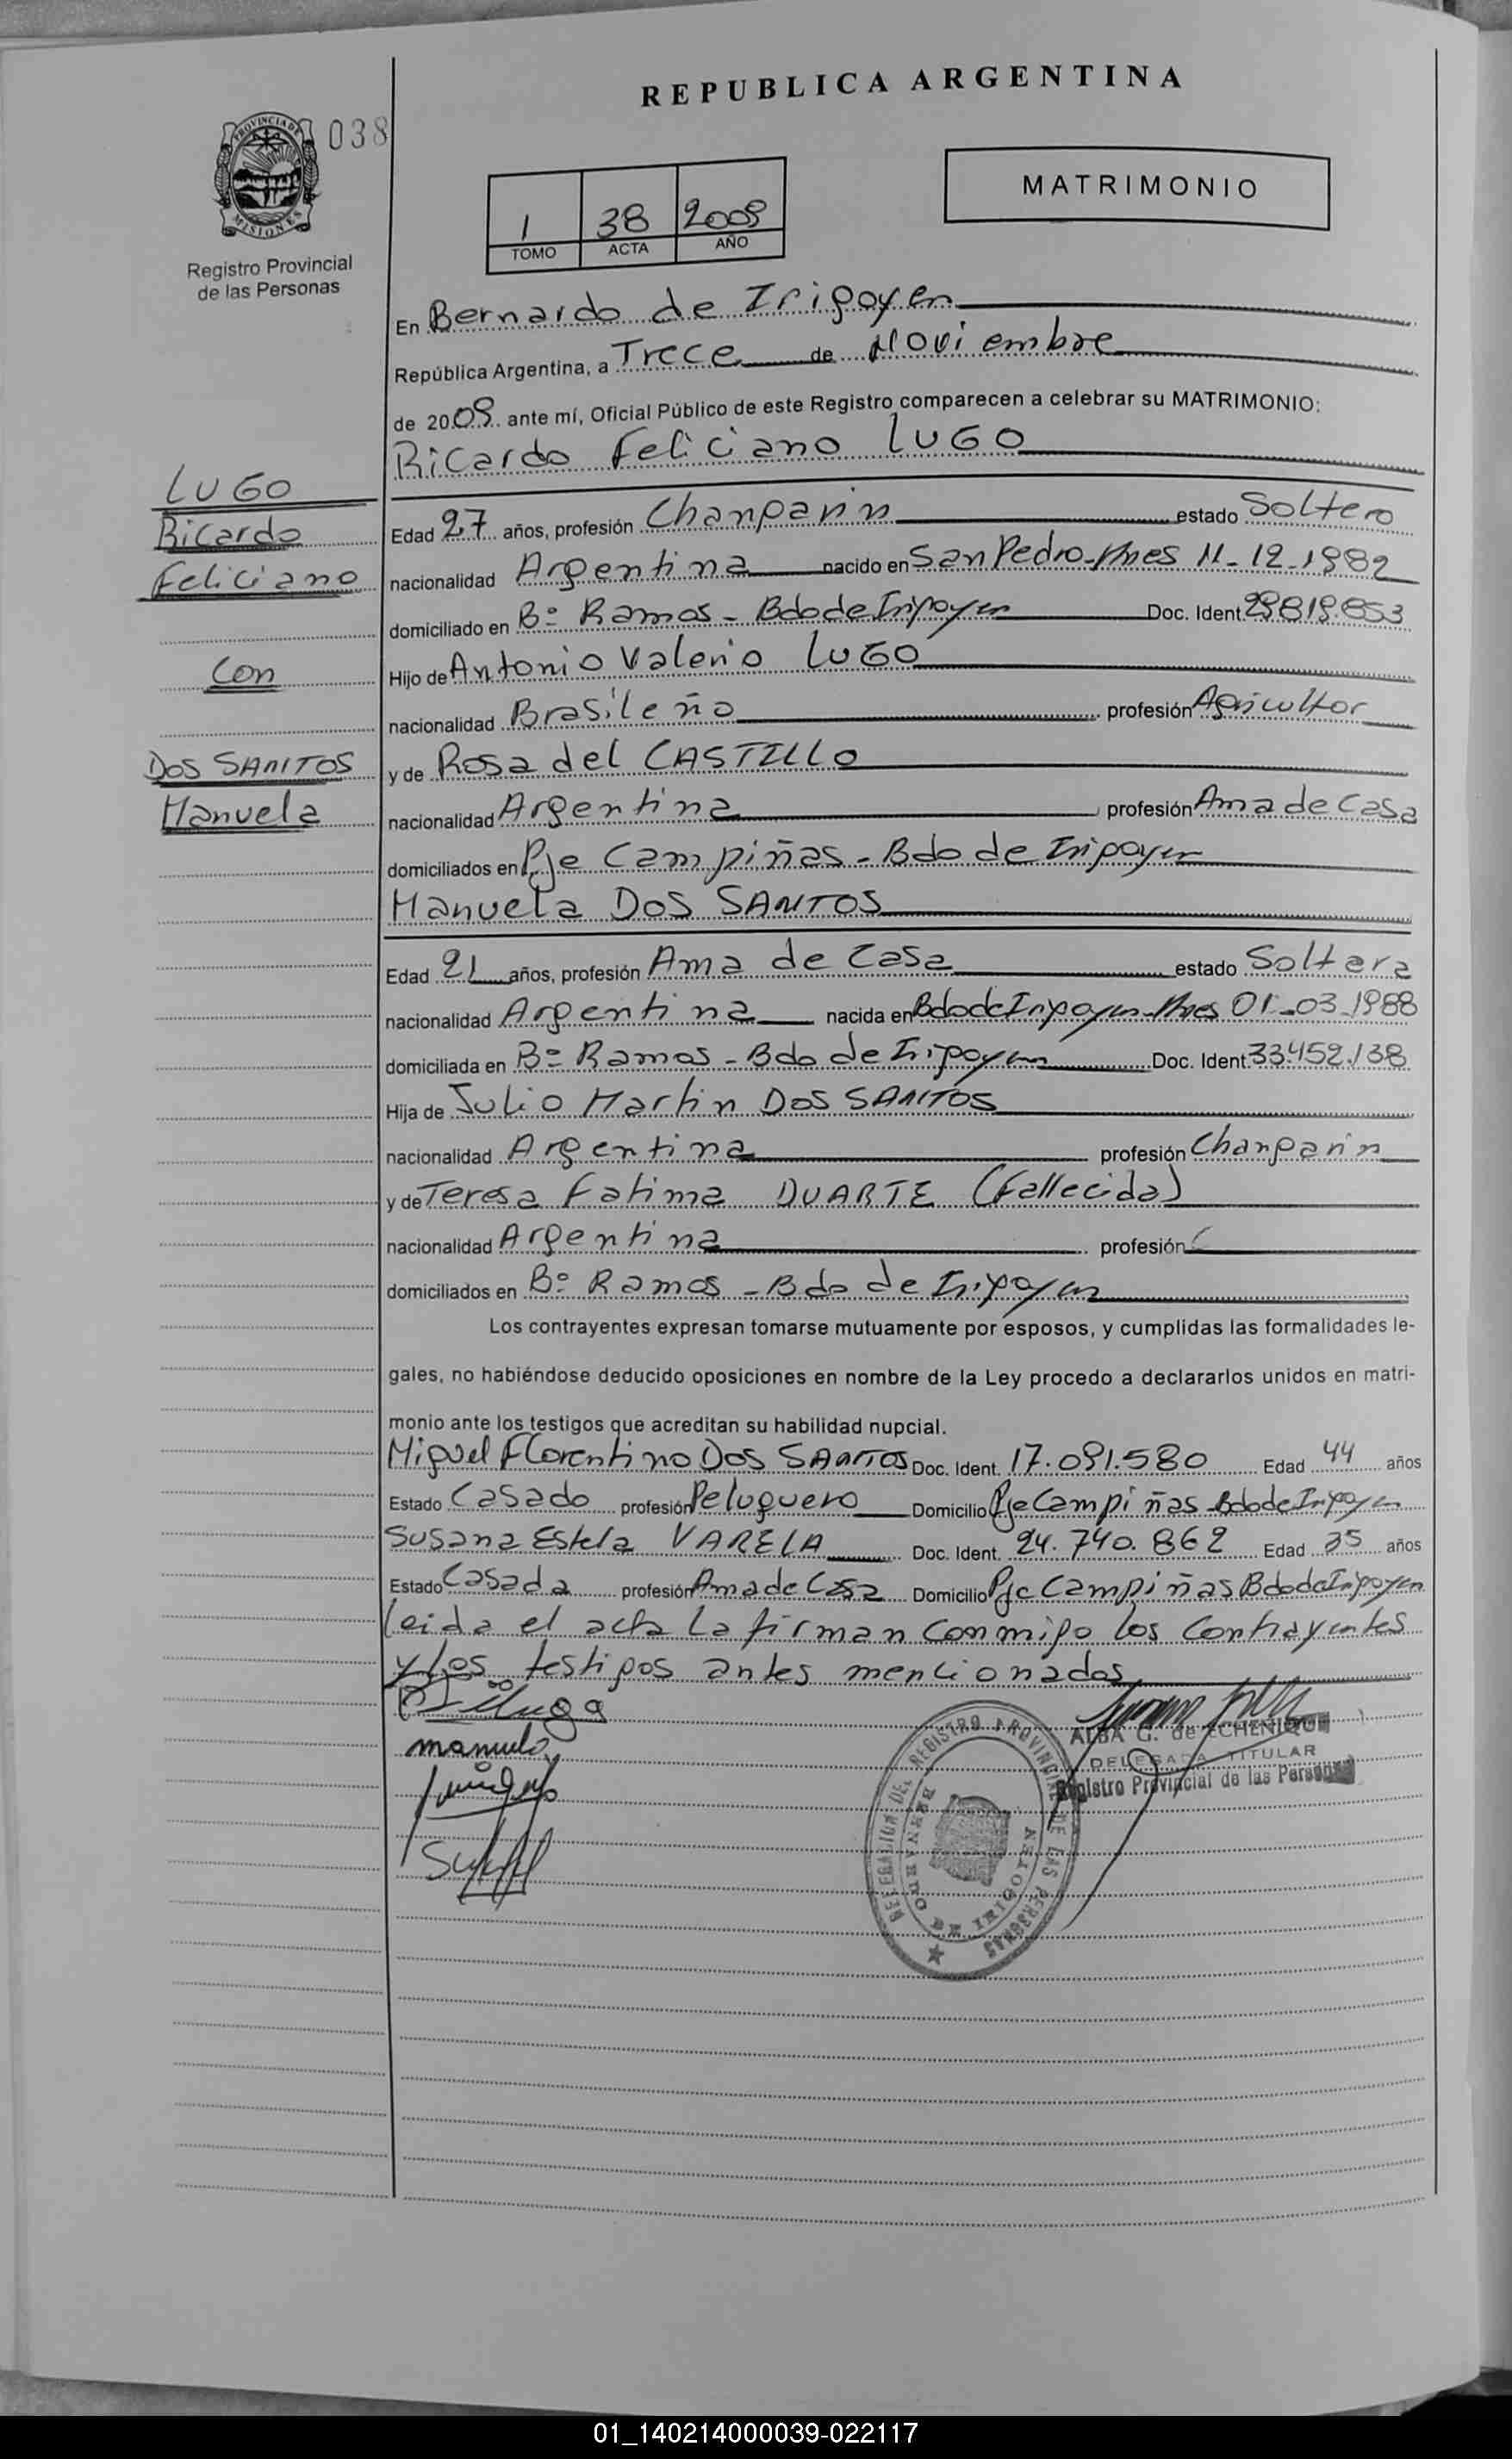 REPUBLICA ARGENTINA
PROVINCIA DE MISIONES
038
Registro Provincial
de las Personas
MATRIMONIO
1 38 2009
TOMO ACTA AÑO
En Bernardo de Irigoyen
República Argentina, a Trece de Noviembre
de 2009 ante mí, Oficial Público de este Registro comparecen a celebrar su MATRIMONIO:
Ricardo Feliciano LUGO
LUGO
Ricardo
Feliciano
Con
DOS SANTOS
Manuela
Edad 27 años, profesión Changarin estado Soltero
nacionalidad Argentina nacido en San Pedro-Mnes 11-12-1982
domiciliado en Bº Ramos - Bdo de Irigoyen Doc. Ident. 29.819.853
Hijo de Antonio Valerio LUGO
nacionalidad Brasileño profesión Agricultor
y de Rosa del CASTILLO
nacionalidad Argentina profesión Ama de Casa
domiciliados en Pje Campiñas - Bdo de Irigoyen
Manuela DOS SANTOS
Edad 21 años, profesión Ama de Casa estado Soltera
nacionalidad Argentina nacida en Bdo de Irigoyen-Mnes 01-03-1988
domiciliada en Bº Ramos - Bdo de Irigoyen Doc. Ident. 33.452.138
Hija de Julio Martin DOS SANTOS
nacionalidad Argentina profesión Changarin
y de Teresa Fatima DUARTE (Fallecida)
nacionalidad Argentina profesión
domiciliados en Bº Ramos - Bdo de Irigoyen
Los contrayentes expresan tomarse mutuamente por esposos, y cumplidas las formalidades le-
gales, no habiéndose deducido oposiciones en nombre de la Ley procedo a declararlos unidos en matri-
monio ante los testigos que acreditan su habilidad nupcial.
Miguel Florentino DOS SANTOS Doc. Ident. 17.091.580 Edad 44 años
Estado Casado profesión Peluquero Domicilio Pje Campiñas Bdo de Irigoyen
Susana Estela VARELA Doc. Ident. 24.740.862 Edad 35 años
Estado Casada profesión Ama de Casa Domicilio Pje Campiñas Bdo de Irigoyen
leida el acta la firman conmigo los contrayentes
y los testigos antes mencionados
Lugo
manuela
ALBA G. de ECHENIQUE
DELEGADA TITULAR
Registro Provincial de las Personas
DELEGACION DEL REGISTRO PROVINCIAL DE LAS PERSONAS
BERNARDO DE IRIGOYEN
01_140214000039-022117